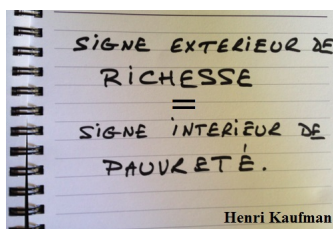 SIGNE EXTERIEUR DE
RICHESSE
=
SIGNE INTERIEUR DE
PAUVRETÉ.
Henri Kaufman